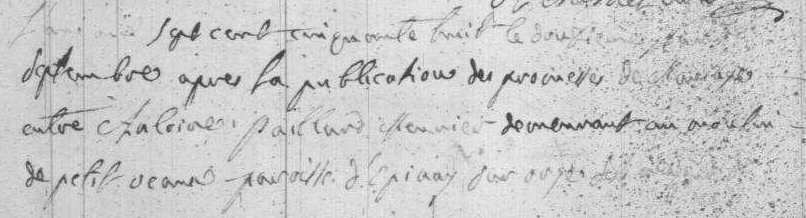 sept cent cinquante huit le douzieme jour de
Septembre apres la publication des promesses de Mariage
entre Paillard Meunier demeurant au moulin
de petit vaux paroisse d'Epinay sur orge